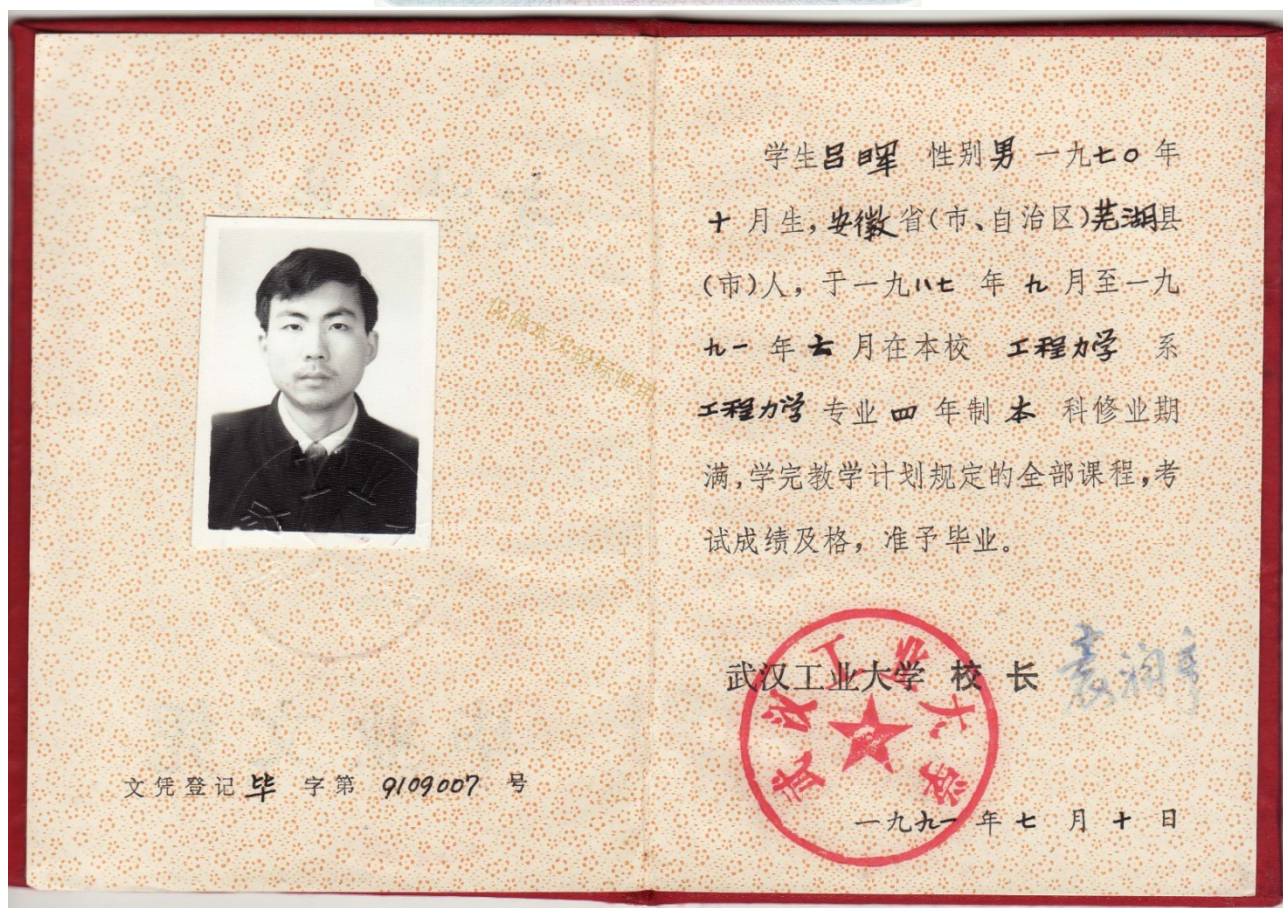 文凭登记毕 字第 9109007 号
学生吕晖 性别男 一九七〇年
十月生，安徽省（市、自治区）芜湖县
（市）人，于一九八七 年 九 月至一九
九一 年 七 月在本校 工程力学 系
工程力学 专业 四 年制 本 科修业期
满，学完教学计划规定的全部课程，考
试成绩及格，准予毕业。
武汉工业大学 校 长 袁润章
武汉工业大学
一九九一 年 七 月 十 日